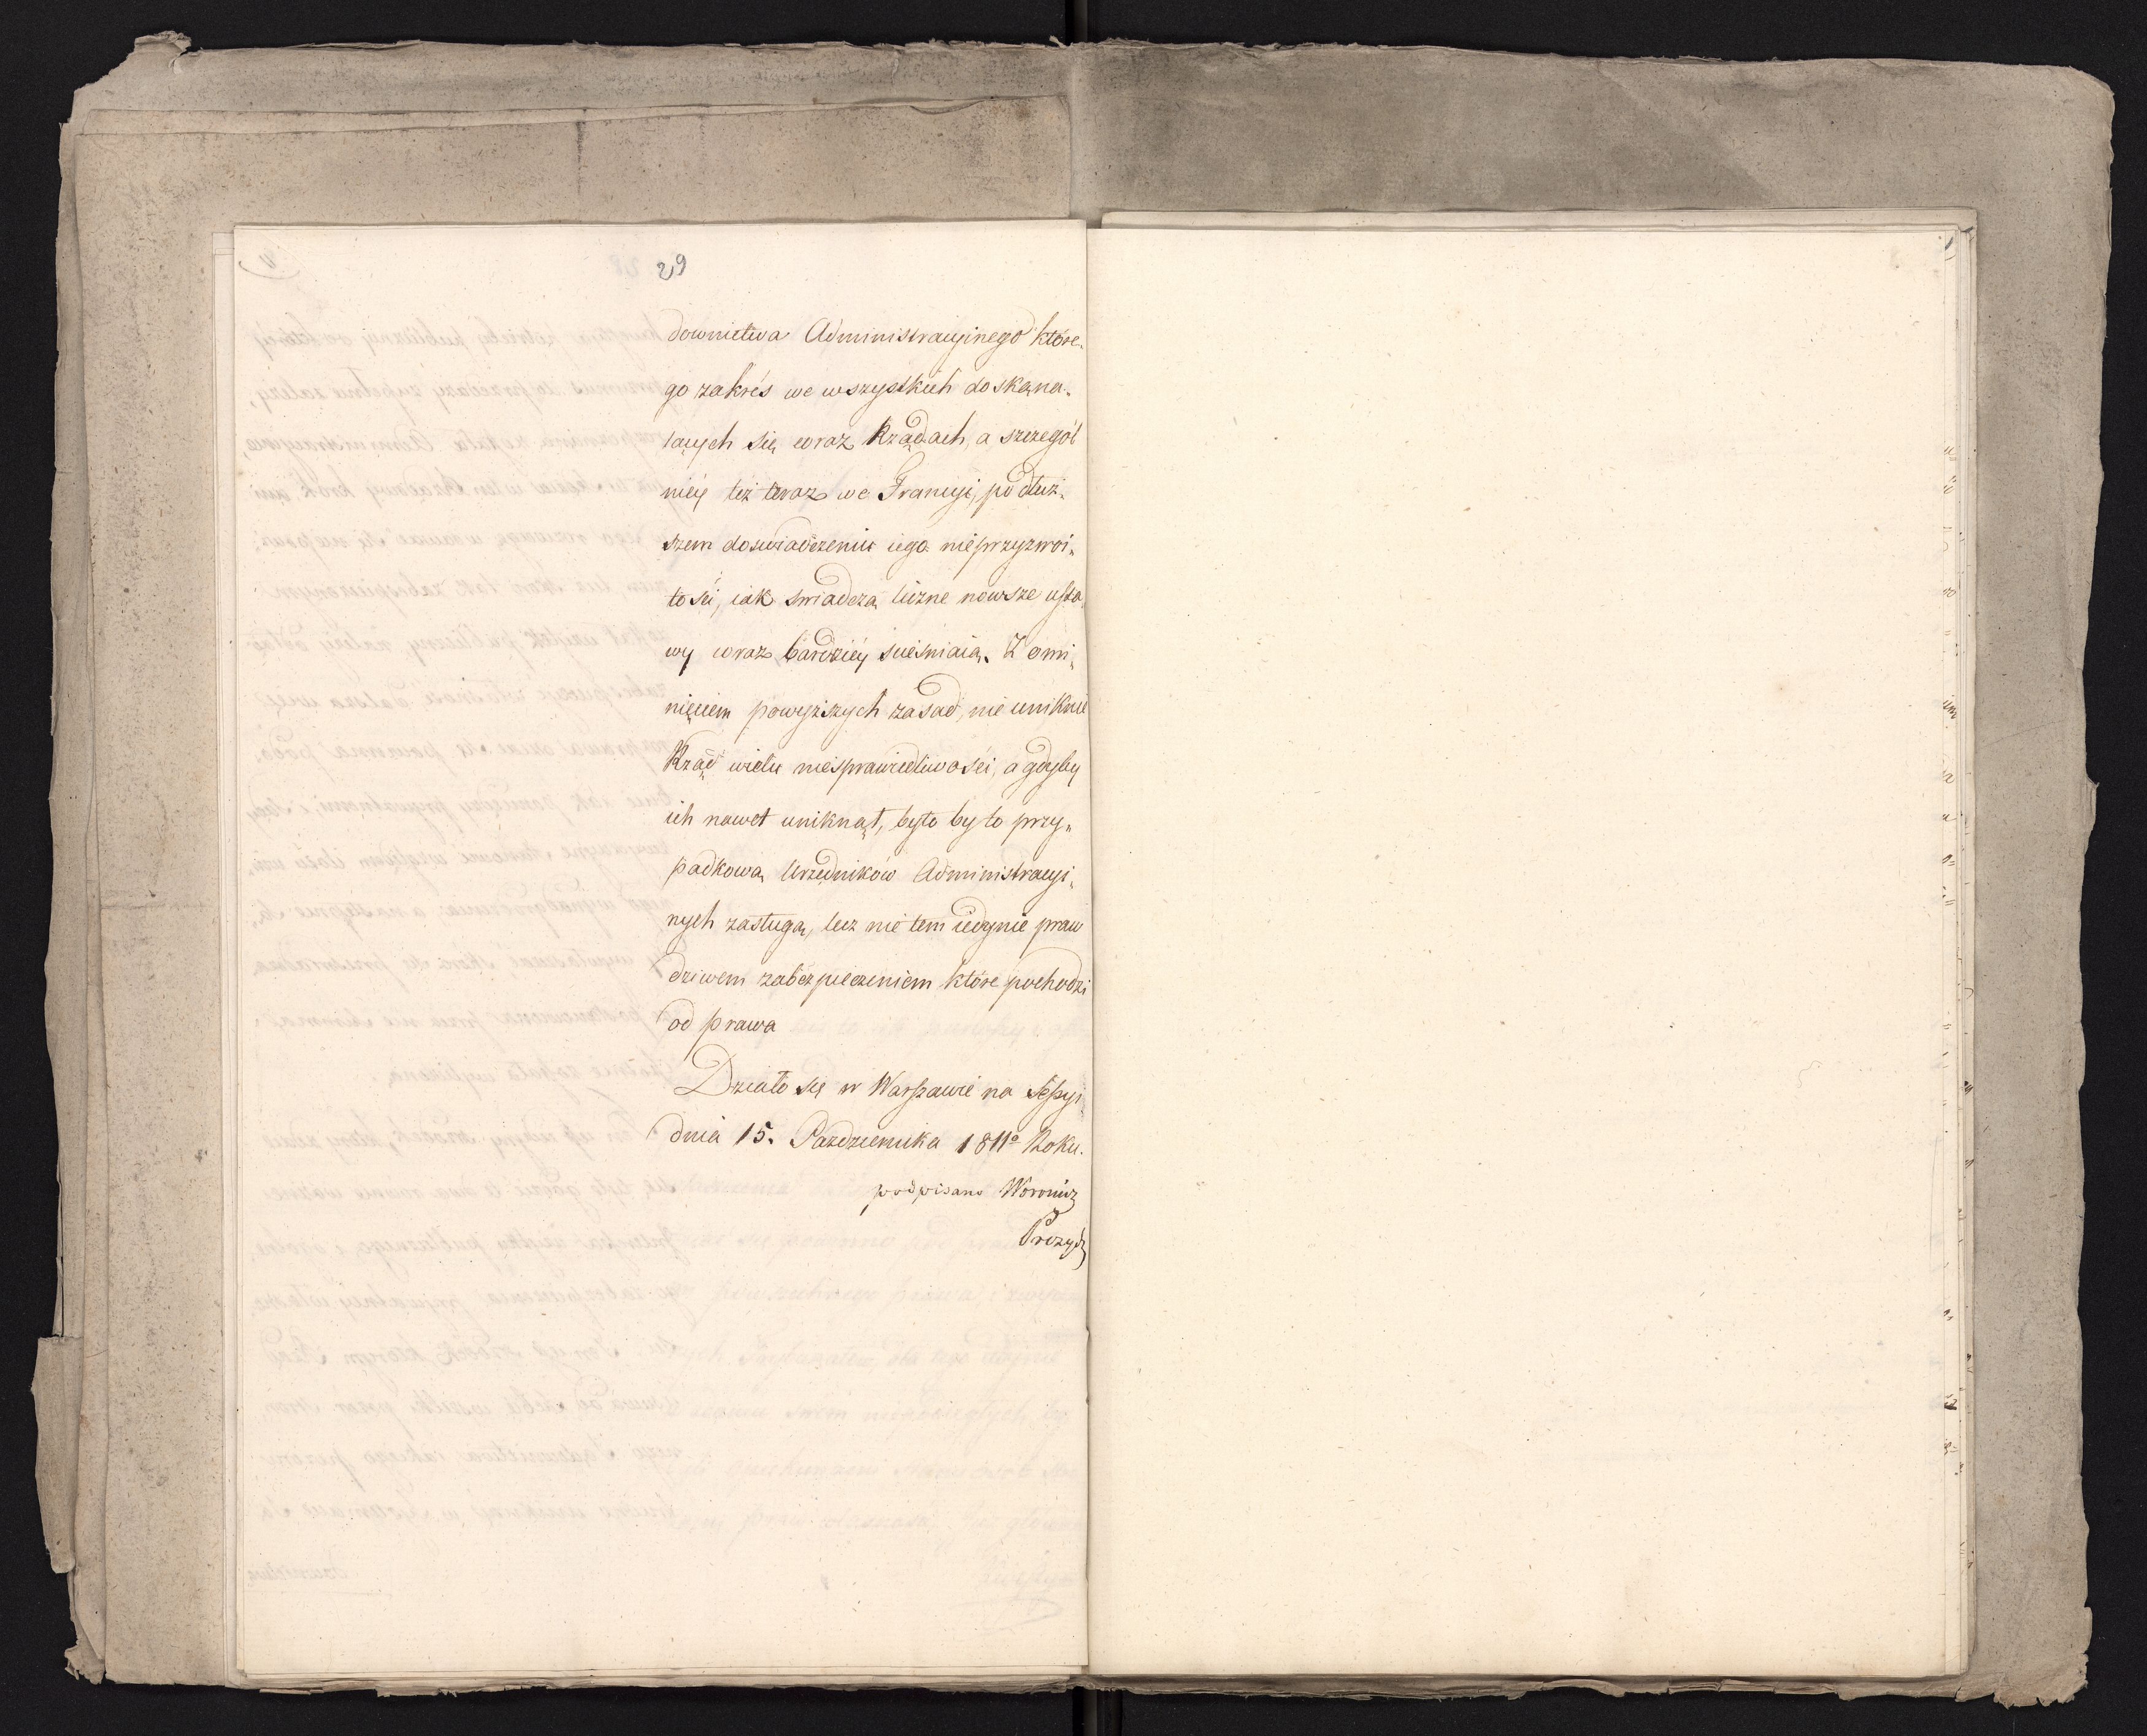 29
downictwa Administracyinego które„
go zakrés we wszystkich doskona„
lących się coraz Rządach, a szczegól
niéy też teraz we Francyi, po dłuż„
szem doswiadczeniu iego nieprzyzwoi„
tości, iak swiadczą liczne nowsze usta„
wy coraz bardziéy scieśniaią. Z omi„
nięciem powyższych zasad, nie uniknie
Rząd wielu niesprawiedliwości, a gdyby
ich nawet uniknął, było by to przy„
padkową Urzędników Administracyi„
nych zasługą, lecz nie tem iedynie praw
dziwem zabezpieczeniem które pochodzi
od prawa
Działo się w Warszawie na Sessyi
dnia 15. Pazdziernika 1811º Roku.
podpisano Woronicz
Prezyd